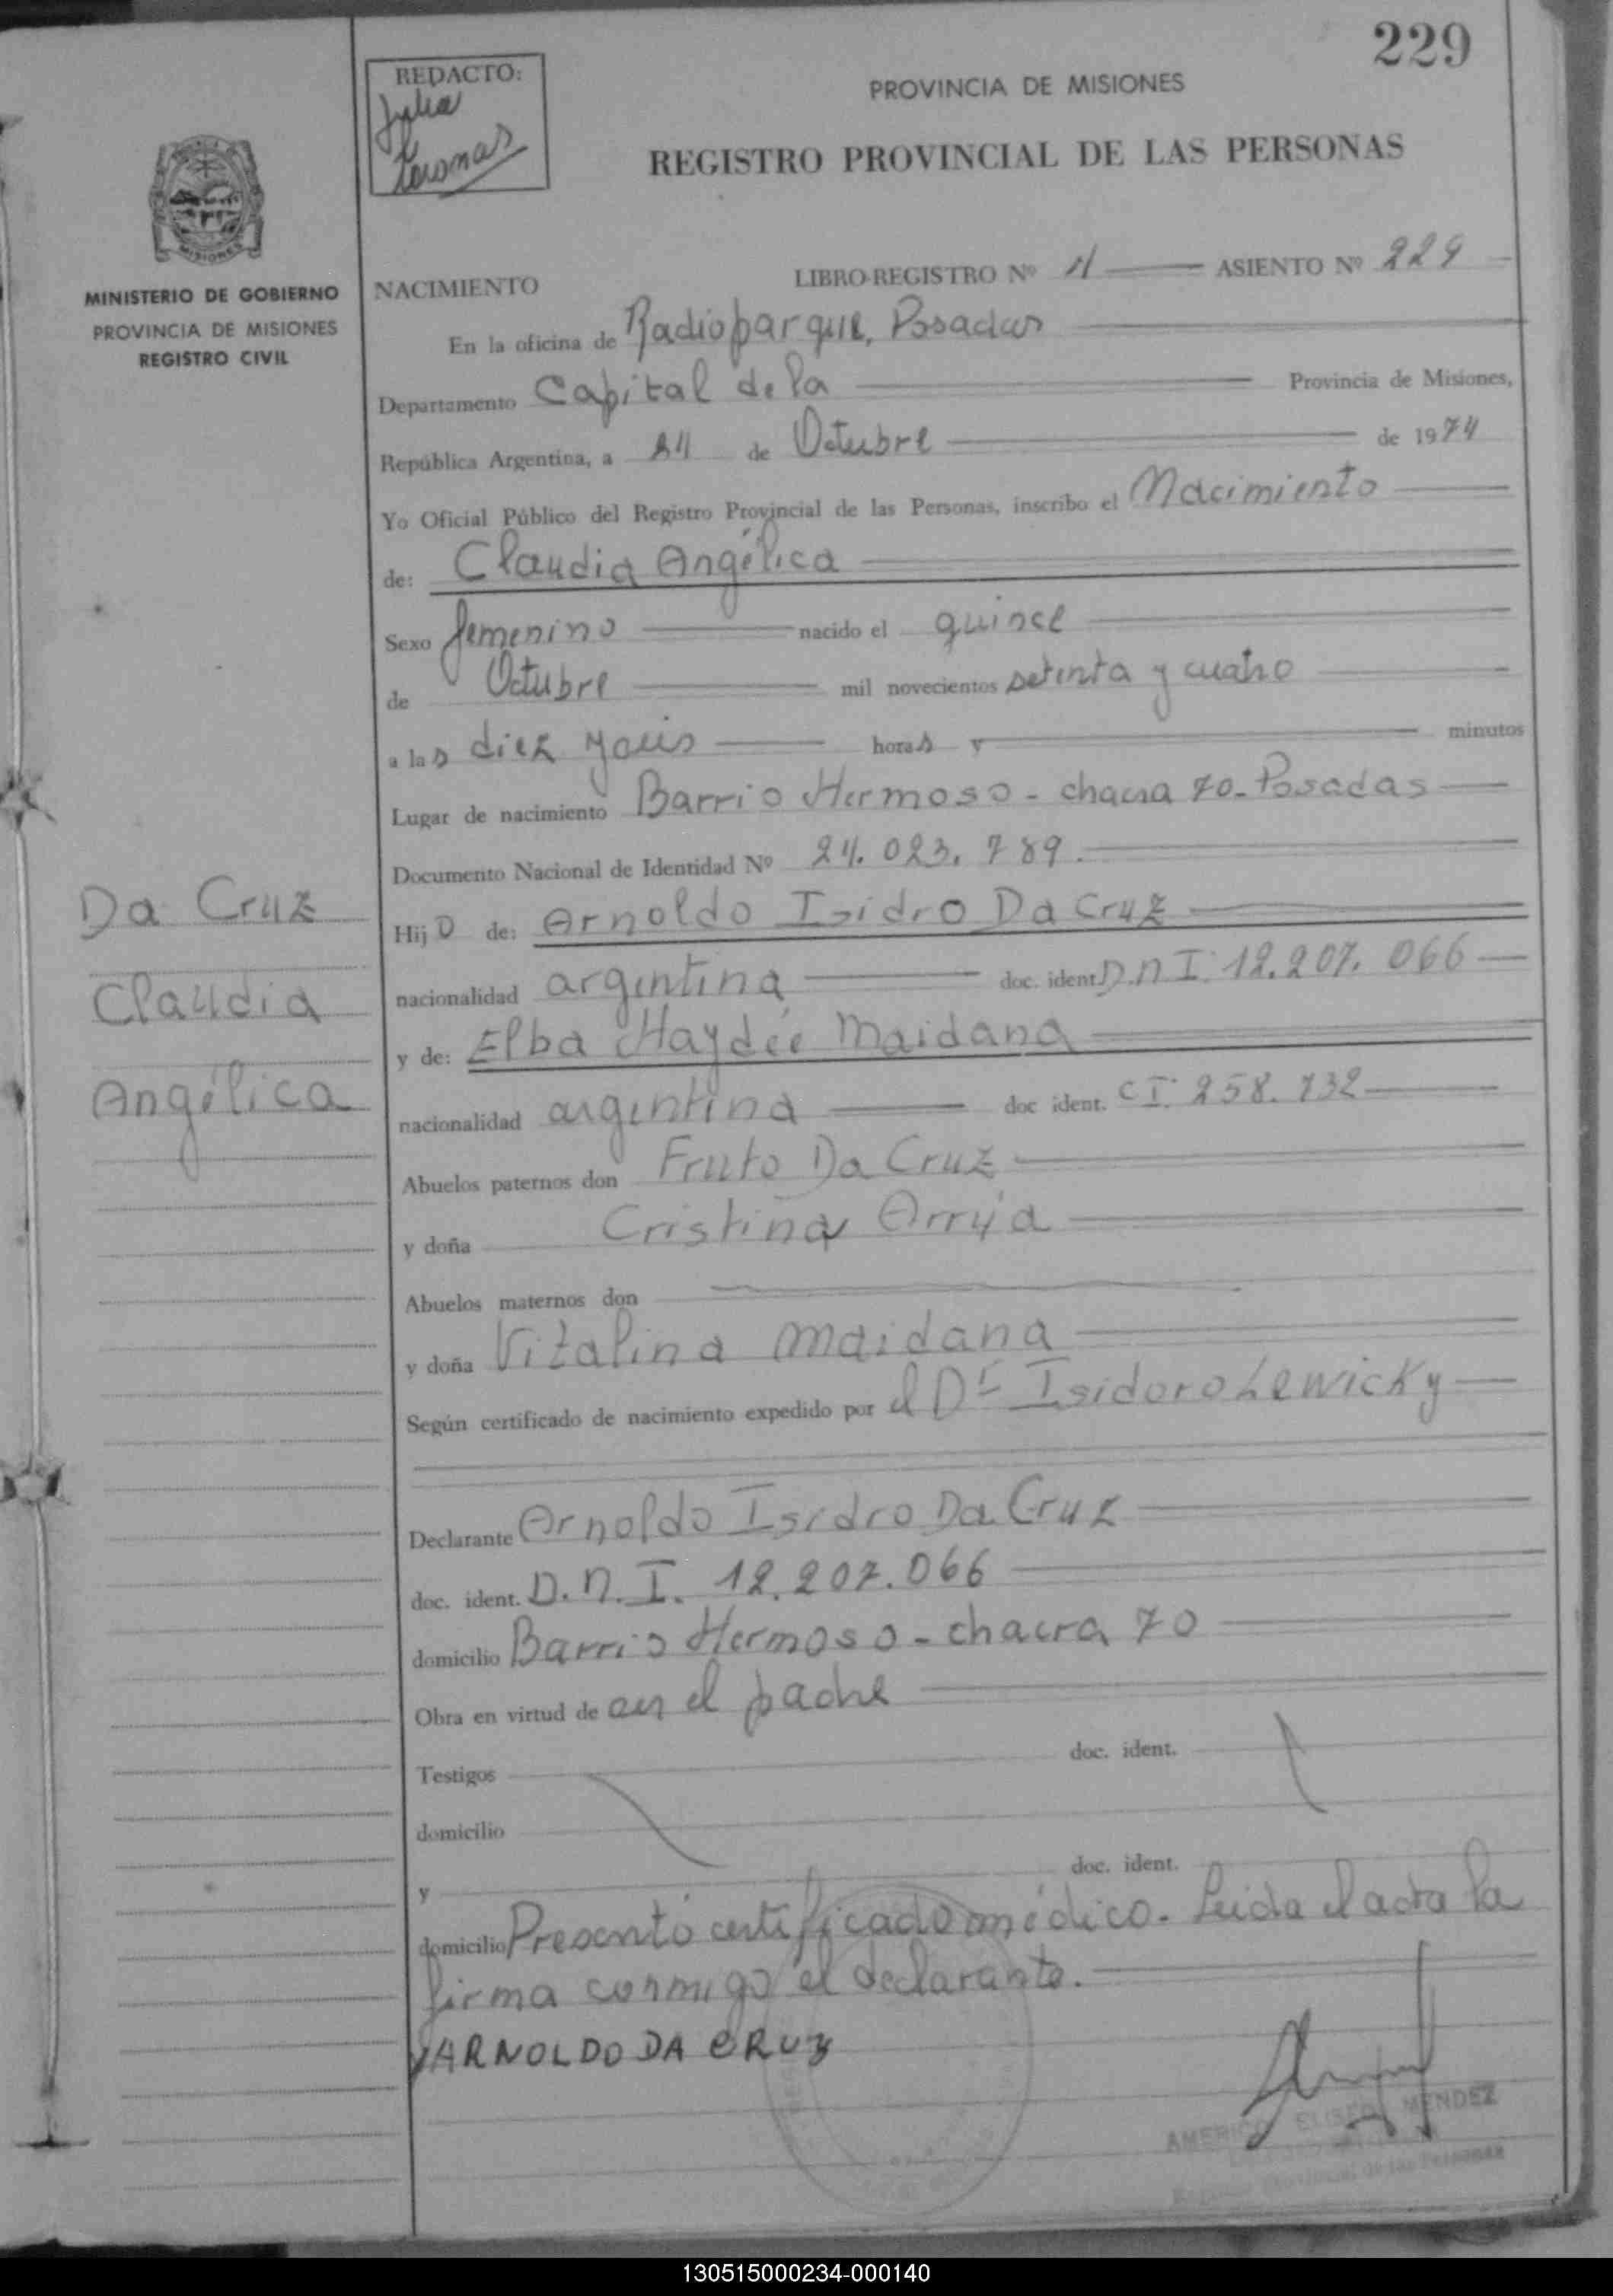 229
REDACTO:
Julia
PROVINCIA DE MISIONES
REGISTRO PROVINCIAL DE LAS PERSONAS
MISIONES
MINISTERIO DE GOBIERNO
PROVINCIA DE MISIONES
REGISTRO CIVIL
NACIMIENTO LIBRO-REGISTRO Nº II ASIENTO Nº 229
En la oficina de Radioparque, Posadas
Departamento Capital de la Provincia de Misiones,
República Argentina, a 24 de Octubre de 1974
Yo Oficial Público del Registro Provincial de las Personas, inscribo el Nacimiento
de: Claudia Angélica
Sexo femenino nacido el quince
de Octubre mil novecientos setenta y cuatro
a las diez y seis horas y minutos
Lugar de nacimiento Barrio Hermoso - chacra 70 - Posadas
Documento Nacional de Identidad Nº 24.023.789.
Da Cruz
Claudia
Angélica
Hija de: Arnoldo Isidro Da Cruz
nacionalidad argentina doc. ident. D.N.I. 12.207.066
y de: Elba Haydée Maidana
nacionalidad argentina doc ident. C I. 258.732
Abuelos paternos don Fruto Da Cruz
y doña Cristina Arrúa
Abuelos maternos don
y doña Vitalina Maidana
Según certificado de nacimiento expedido por el Dr Isidoro Lewicky
Declarante Arnoldo Isidro Da Cruz
doc. ident. D.N.I. 12.207.066
domicilio Barrio Hermoso - chacra 70
Obra en virtud de ser el padre
Testigos doc. ident.
domicilio
y doc. ident.
domicilio Presentó certificado médico. Leida el acta la
firma conmigo el declarante.
ARNOLDO DA CRUZ
AMERICO ELISEO MENDEZ
Registro Provincial de las Personas
130515000234-000140